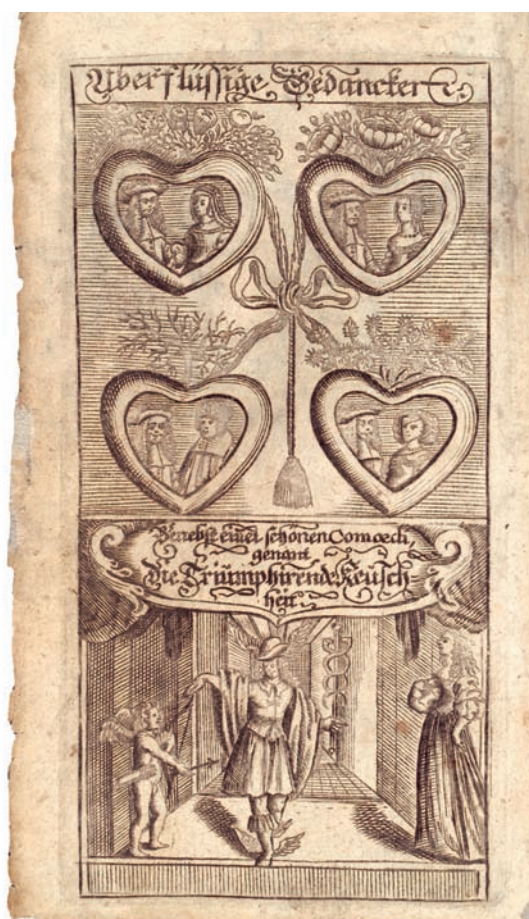 Uberflüssige Gedancken ꝛc.
Benebst einer schönen Comoedi,
genant
Die Triumphirende Keusch=
heit.